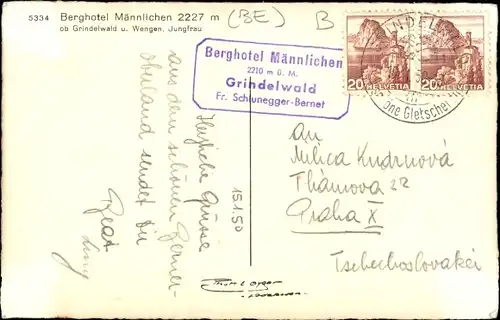 5334 Berghotel Männlichen 2227 m
ob Grindelwald u. Wengen, Jungfrau
(BE)
B
Berghotel Männlichen
2210 m ü. M.
Grindelwald
Fr. Schlunegger-Bernet
20 HELVETIA
20 HELVETIA
Gletscher
15.1.50
Herzliche Grüsse
aus dem schönen Berner-
oberland sendet Dir
Beat
An
Milica Kudrnová
Thámova 22
Praha X
Tschechoslovakei